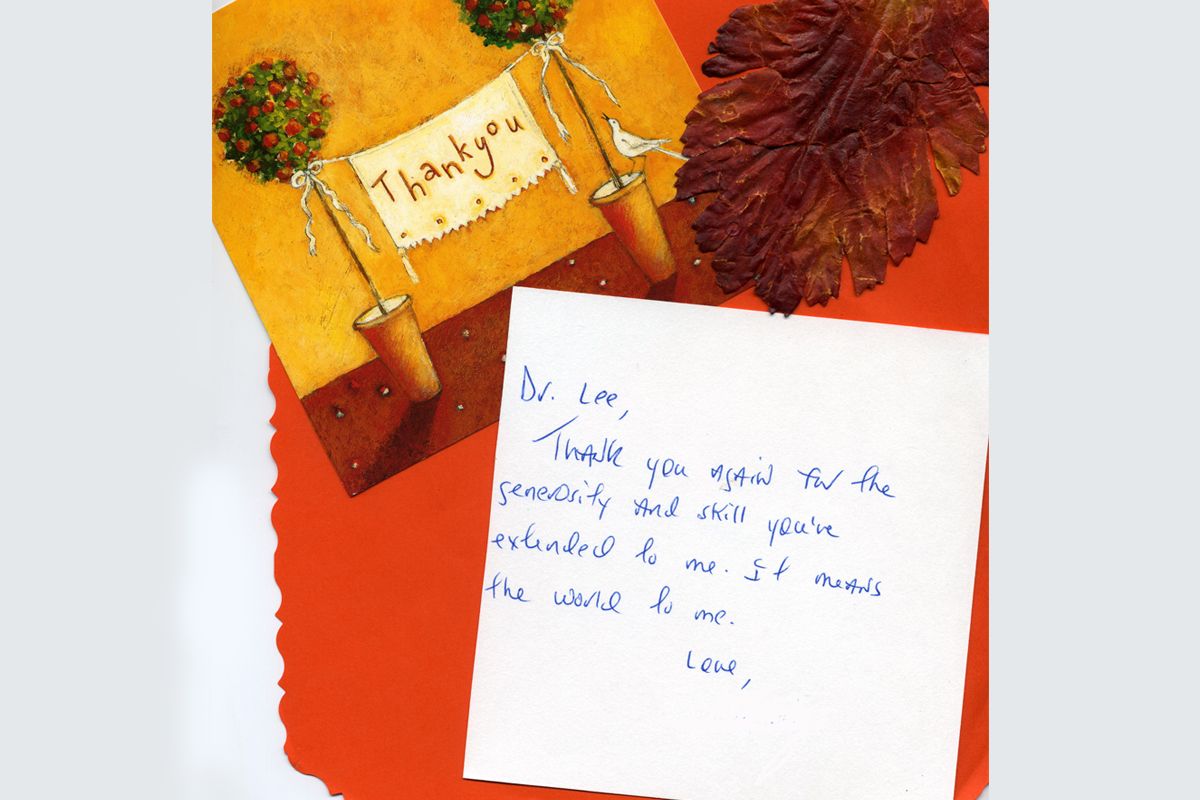 Thankyou
Dr. Lee,
Thank you again for the
generosity and skill you've
extended to me. It means
the world to me.
Love,